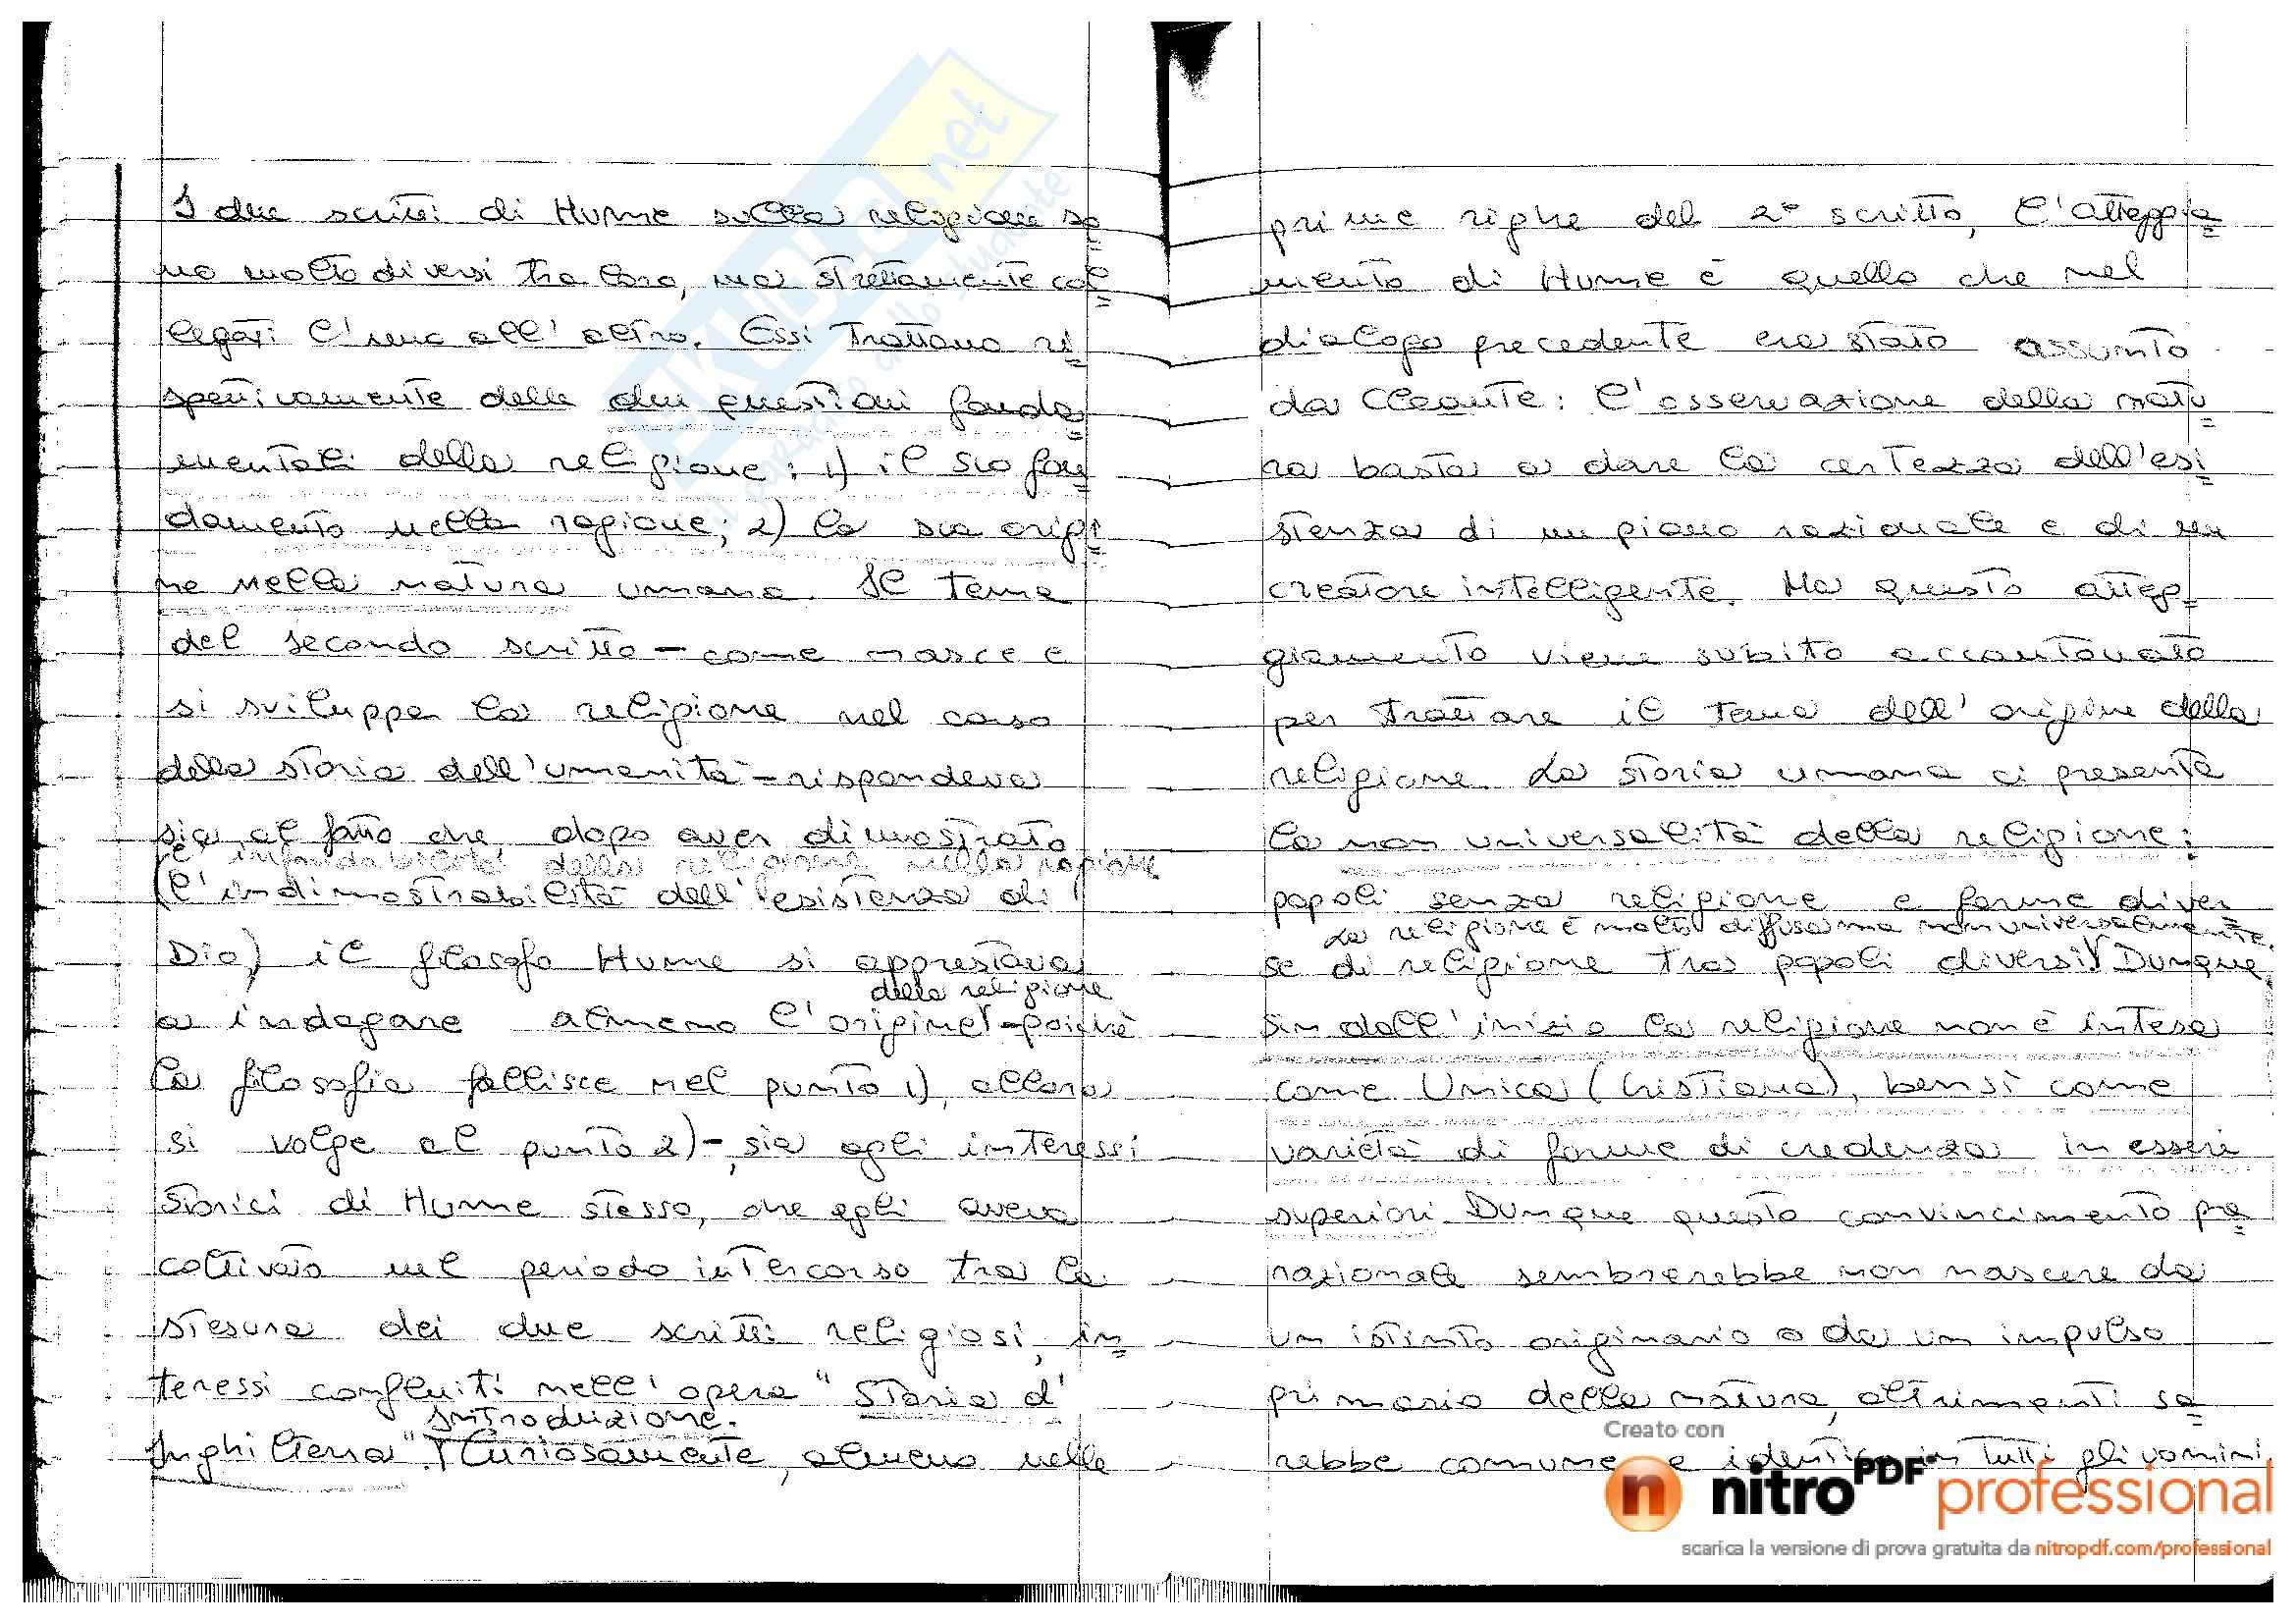 I due scritti di Hume sulla religione so=
no molto diversi tra loro, ma strettamente col=
legati l'uno all'altro. Essi trattano ri=
spettivamente delle due questioni fonda=
mentali della religione: 1) il suo fon=
damento nella ragione; 2) la sua origi=
ne nella natura umana. Il tema
del secondo scritto - come nasce e
si sviluppa la religione nel corso
della storia dell'umanità - rispondeva
sia al fatto che, dopo aver dimostrato
l'infondabilità della religione nella ragione
(l'indimostrabilità dell'esistenza di
Dio) il filosofo Hume si apprestava
della religione
a indagare almeno l'origine - poiché
la filosofia fallisce nel punto 1), allora
si volge al punto 2) -, sia agli interessi
storici di Hume stesso, che egli aveva
coltivato nel periodo intercorso tra la
stesura dei due scritti religiosi, in=
teressi confluiti nell'opera "Storia d'
Introduzione.
Inghilterra". Curiosamente, almeno nelle
prime righe del 2° scritto, l'atteggia=
mento di Hume è quello che nel
dialogo precedente era stato assunto
da Cleante: l'osservazione della natu
ra basta a dare la certezza dell'esi
stenza di un piano razionale e di un
creatore intelligente. Ma questo atteg=
giamento viene subito accantonato
per trattare il tema dell'origine della
religione. La storia umana ci presenta
la non universalità della religione:
popoli senza religione e forme diver
La religione è molto diffusa ma non universalmente.
se di religione tra popoli diversi. Dunque
sin dall'inizio la religione non è intesa
come Unica (Cristiana), bensì come
varietà di forme di credenza in esseri
superiori. Dunque questo convincimento pre=
razionale sembrerebbe non nascere da
un istinto originario o da un impulso
primario della natura, altrimenti sa=
rebbe comune e identica in tutti gli uomini.
Creato con
nitro PDF professional
scarica la versione di prova gratuita da nitropdf.com/professional